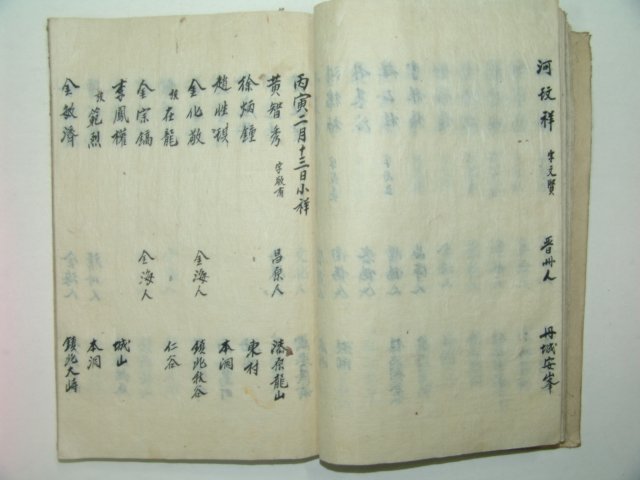 河玟祥 字元賢 晋州人 丹城安峯
丙寅二月十三日小祥
黄智秀 字敬有 昌原人 潘原龍山
徐炳鍾 東村
趙性稷 本洞
金化敬 金海人 鎮北牧谷
在龍 仁谷
金宗鎬 金海人
李鳳權 城山
範烈 本洞
金敏濟 鎮北大峙